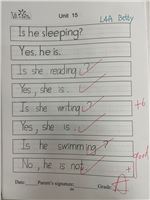 Unit 15
L4A Betty
Is he sleeping?
Yes, he is.
Is she reading?
Yes, she is.
Is she writing?
+6
Yes, she is.
Is he swimming?
Good
No, he is not.
Date: Parent's signature: Grade: A+